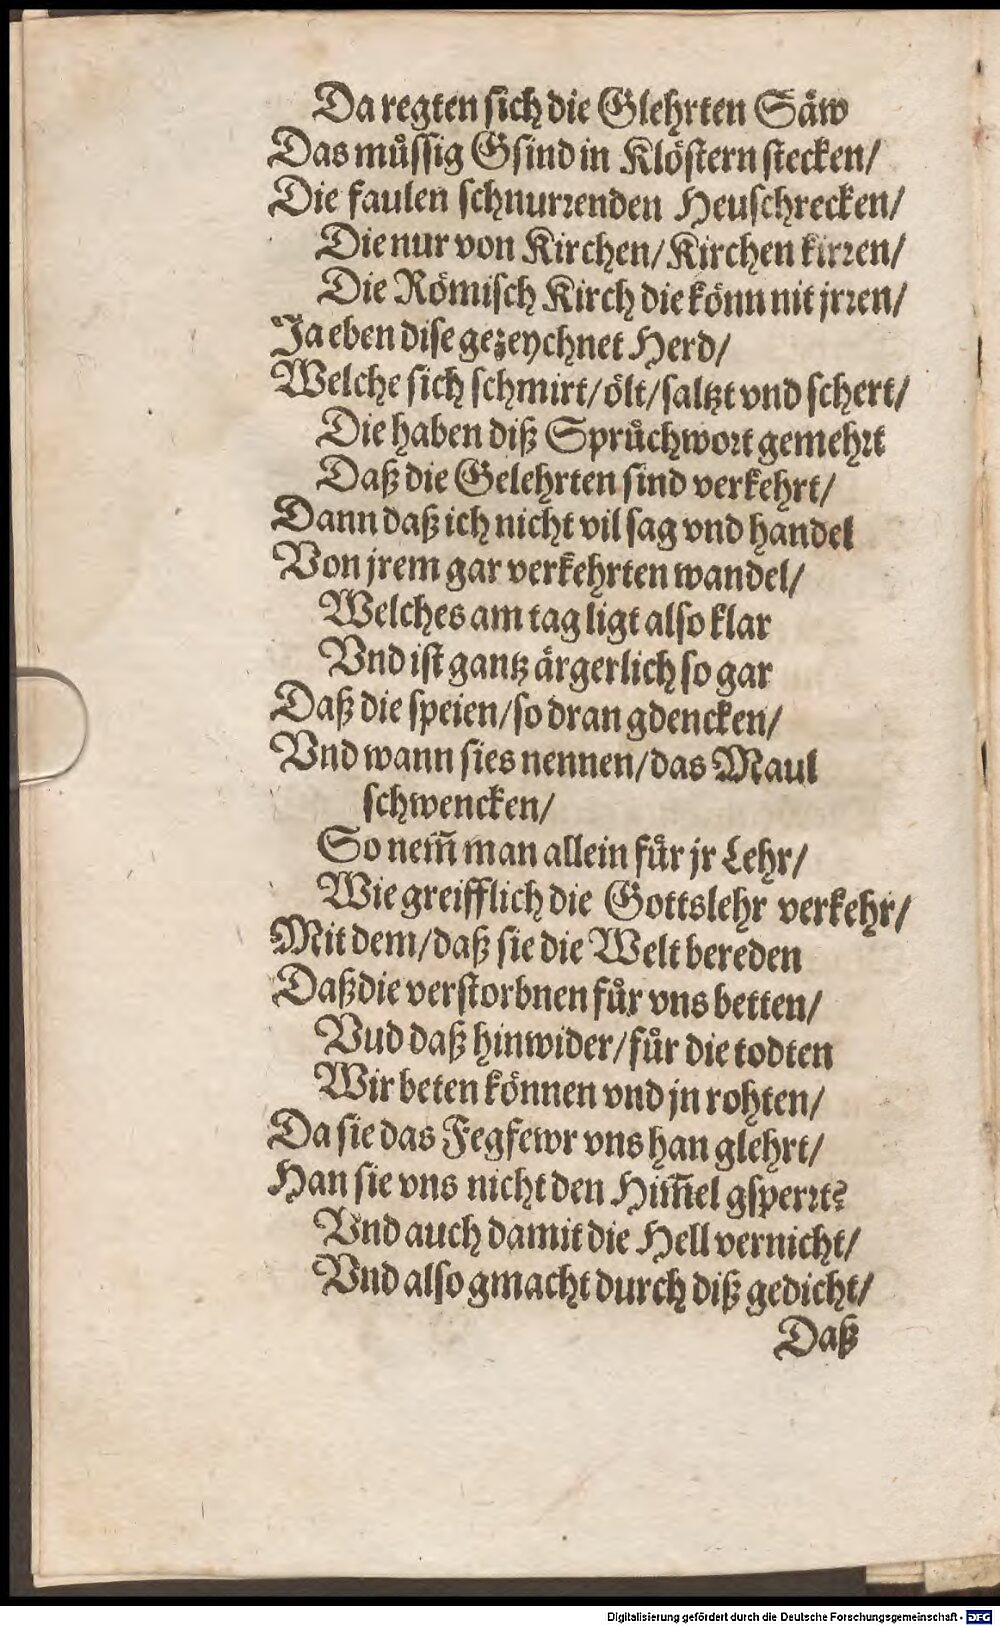 Da regten sich die Glehrten Säw
Das müssig Gsind in Klöstern stecken/
Die faulen schnurrenden Heuschrecken/
Die nur von Kirchen/Kirchen kirren/
Die Römisch Kirch die könn nit jrren/
Ja eben dise gezeychnet Herd/
Welche sich schmirt/ölt/saltzt vnd schert/
Die haben diß Sprůchwort gemehrt
Daß die Gelehrten sind verkehrt/
Dann daß ich nicht vil sag vnd handel
Von jrem gar verkehrten wandel/
Welches am tag ligt also klar
Vnd ist gantz ärgerlich so gar
Daß die speien/so dran gdencken/
Vnd wann sies nennen/das Maul
schwencken/
So nem̃ man allein für jr Lehr/
Wie greifflich die Gottslehr verkehr/
Mit dem/daß sie die Welt bereden
Daß die verstorbnen für vns betten/
Vud daß hinwider/für die todten
Wir beten können vnd jn rohten/
Da sie das Fegfewr vns han glehrt/
Han sie vns nicht den Him̃el gsperrt?
Vnd auch damit die Hell vernicht/
Vnd also gmacht durch diß gedicht/
Daß
Digitalisierung gefördert durch die Deutsche Forschungsgemeinschaft - DFG